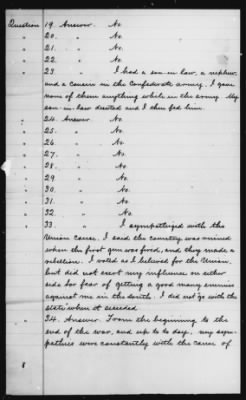 Question 19. Answer. No.
" 20. " No.
" 21. " No.
" 22. " No.
" 23 " I had a son-in-law, a nephew
and a cousin in the Confederate army. I gave
none of them anything while in the army. My
son-in-law deserted and I then fed him.
" 24. Answer No.
" 25. " No.
" 26. " No.
" 27. " No.
" 28. " No.
" 29 " No.
" 30. " No.
" 31. " No.
" 32. " No.
" 33. " I sympathized with the
Union cause. I said the country was ruined
when the first gun was fired, and they made a
rebellion. I voted as I believed for the Union,
but did not exert my influence on either
side for fear of getting a good many enemies
against me in the South. I did not go with the
State when it seceded
" 34. Answer. From the beginning to the
end of the war, and up to to day, my sym-
pathies were constantly with the cause of
8